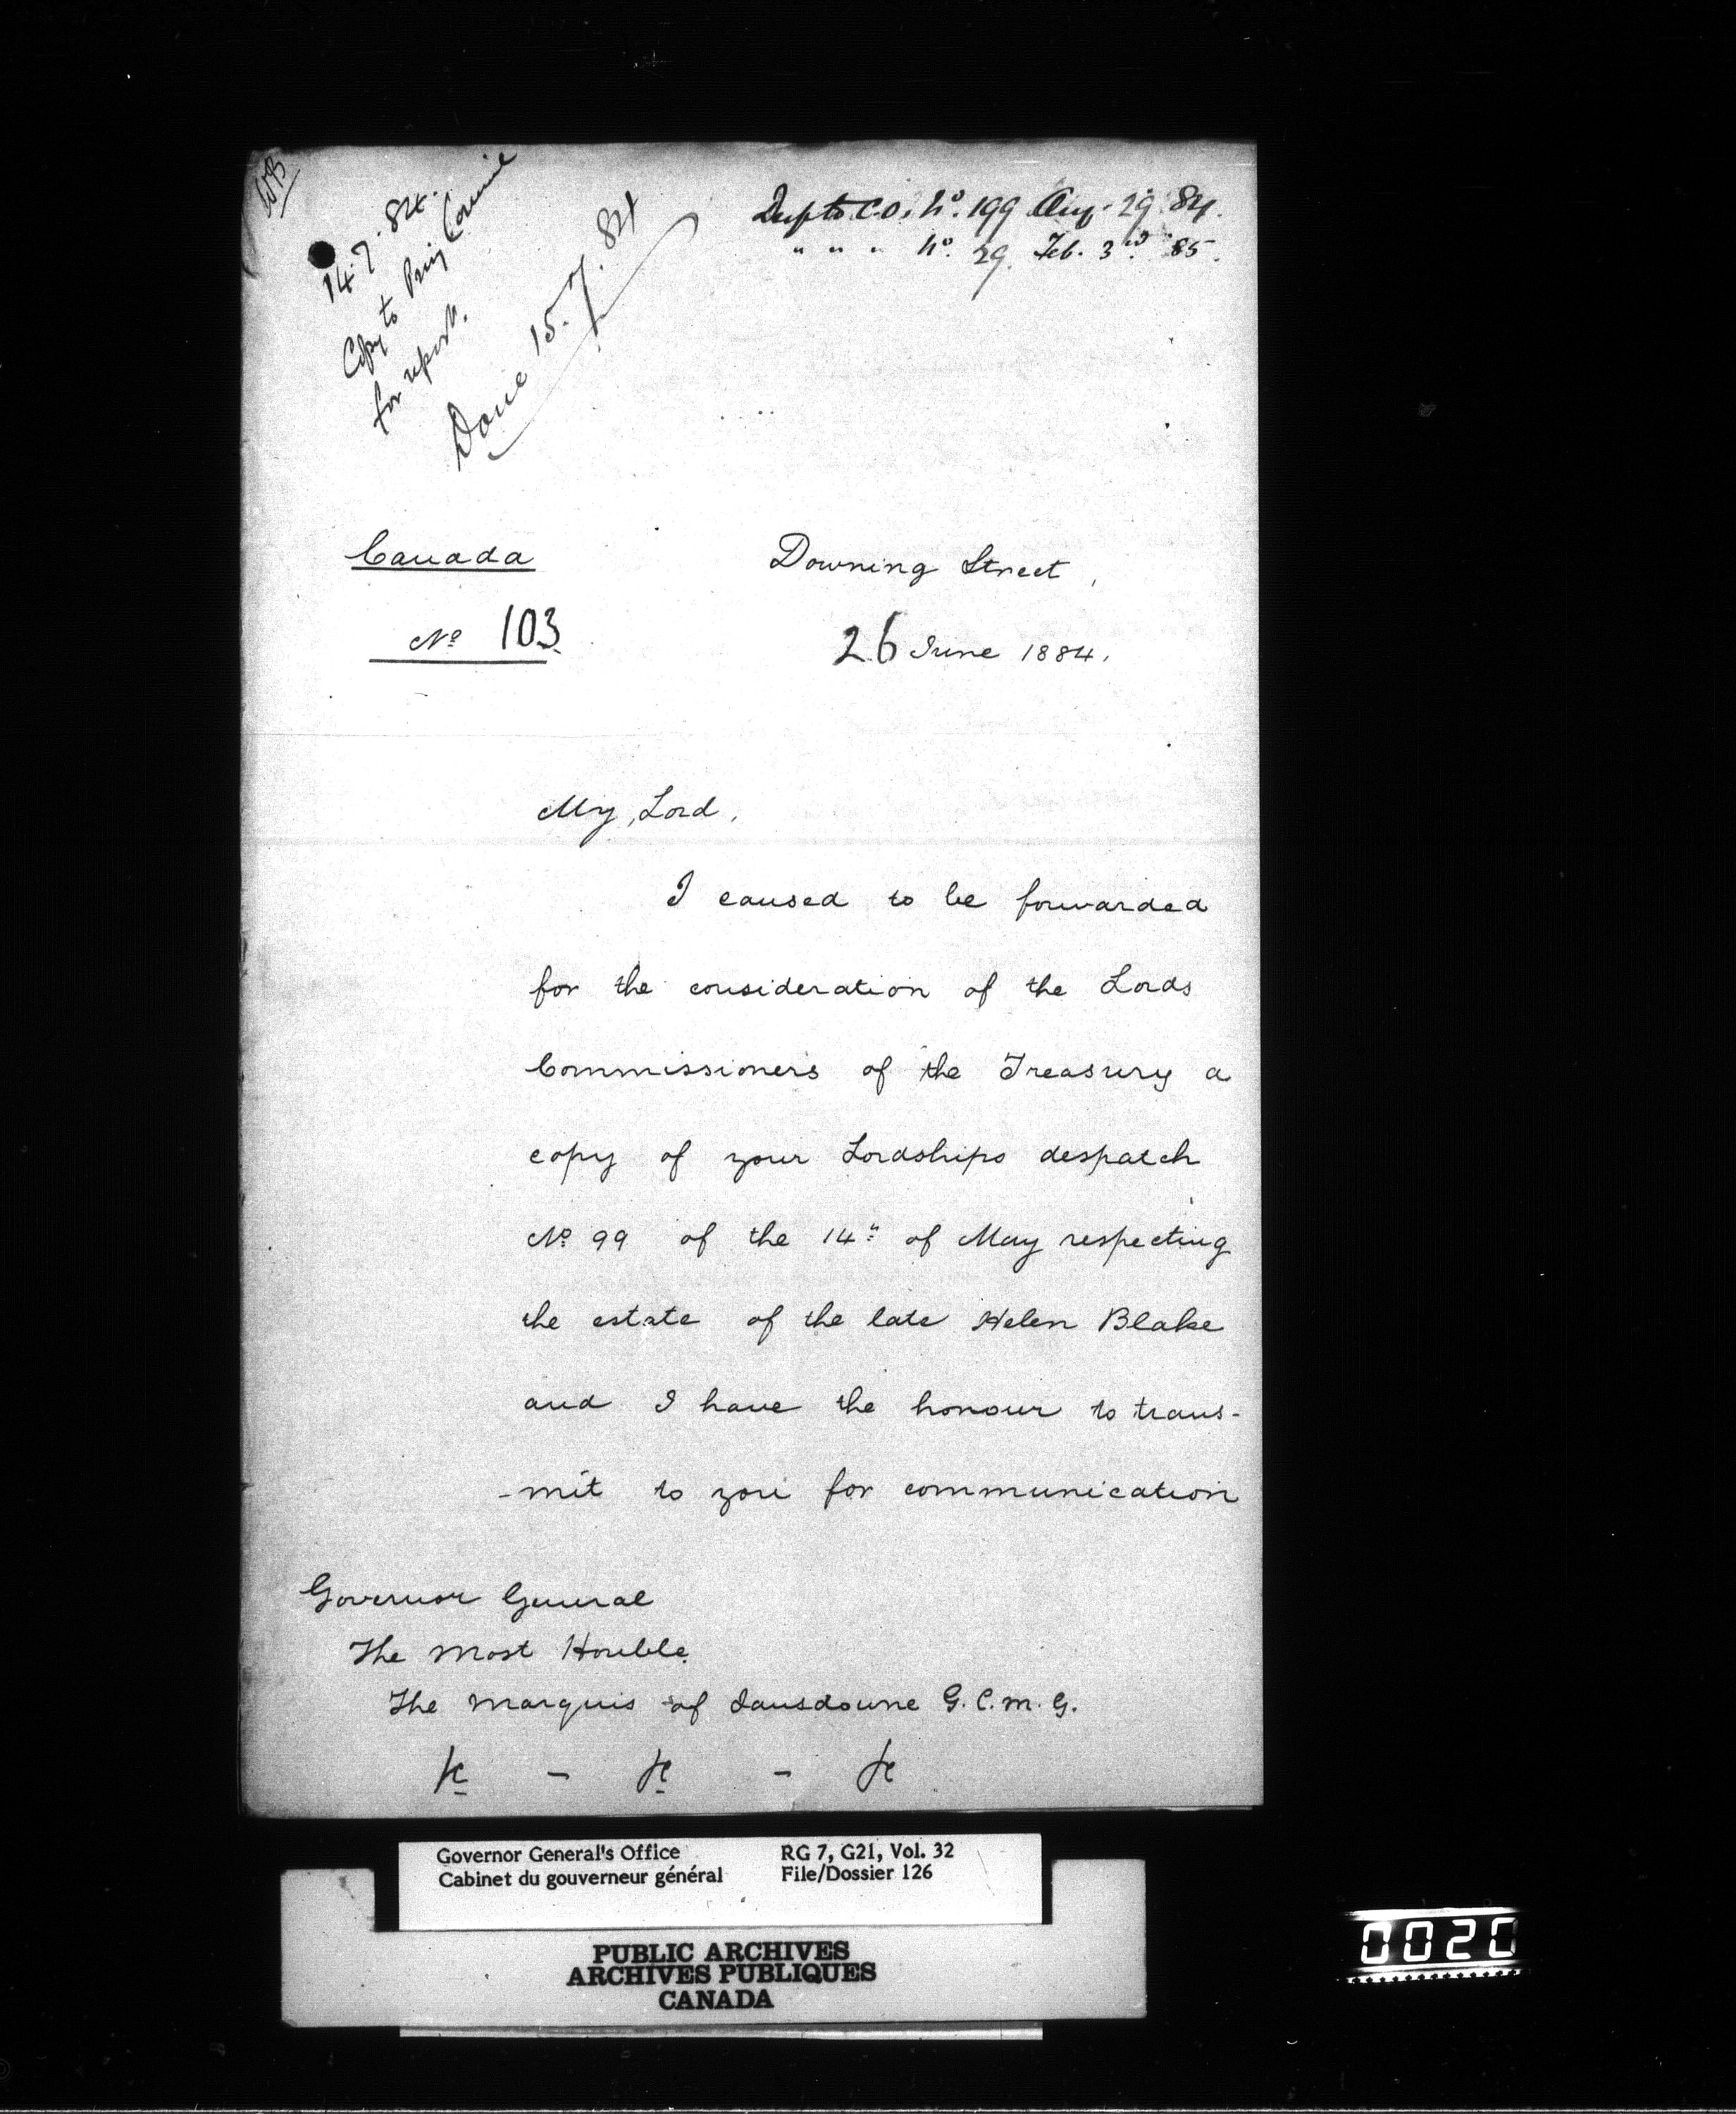 14.7.84.
Copy to Privy Council
for report.
Done 15.7.84
Desp to C.O. No. 199 Aug. 29 84.
" " " No. 29. Feb. 3rd 85.
Canada
No 103.
Downing Street,
26 June 1884.
My Lord,
I caused to be forwarded
for the consideration of the Lords
Commissioners of the Treasury a
copy of your Lordships despatch
No 99 of the 14" of May respecting
the estate of the late Helen Blake
and I have the honour to trans-
-mit to you for communication
Governor General
The Most Honble
The Marquis of Lansdowne G.C.M.G.
&c - &c - &c
Governor General's Office
Cabinet du gouverneur général
RG 7, G21, Vol. 32
File/Dossier 126
PUBLIC ARCHIVES
ARCHIVES PUBLIQUES
CANADA
0020